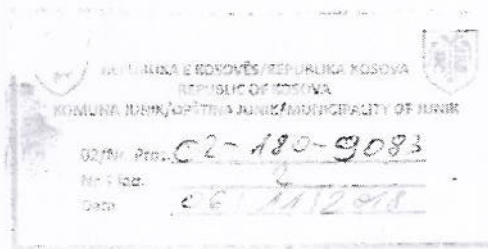 REPUBLIKA E KOSOVËS/REPUBLIKA KOSOVA
REPUBLIC OF KOSOVA
KOMUNA JUNIK/OPŠTINA JUNIK/MUNICIPALITY OF JUNIK
02/Nr. Prot. 02-180-9083
Nr. Flet. 2
Data 06/11/2018